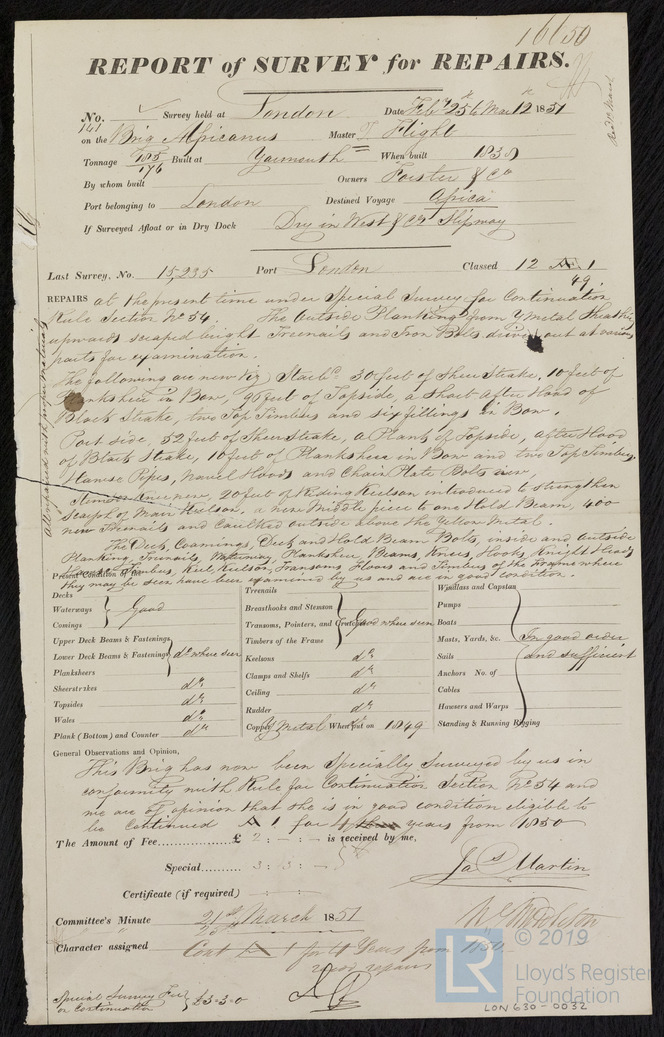 16650
REPORT of SURVEY for REPAIRS.
No. 141 Survey held at London Date Feby 25th & Mar 12th 1851
on the Brig Africanus Master Flight
Tonnage 185 176 Built at Yarmouth When built 1838
By whom built Owners Forster & Co
Port belonging to London Destined Voyage Africa
If Surveyed Afloat or in Dry Dock Dry in West & Co Slipway
Last Survey, No. 15,235 Port London Classed 12 A 1
49
REPAIRS at the present time under Special Survey for Continuation
Rule Section No 54. The Outside Planking from Y Metal Sheathg
upwards scraped bright Treenails and Iron Bolts driven out at various
parts for examination.
The following are new Viz Starbd. 30 feet of Sheerstrake, 10 feet of
Planksheer in Bow, 98 feet of Topside, a Short After Hood of
Black Strake, two Top Timbers and six fillings in Bow.
Port side, 52 feet of Sheerstrake, a Plank of Topside, After Hood
of Black Strake, 10 feet of Planksheer in Bow and two Top Timbers
Hawse Pipes, Navel Hoods and Chain Plate Bolts new
new, 20 feet of Riding Keelson introduced to strengthen
Scarph of Main Keelson, a new Middle piece to one Hold Beam, 400
new Treenails and Caulked outside above the Yellow Metal.
The Deck, Coamings, Deck and Hold Beam Bolts, inside and Outside
Planking, Treenails, Waterway, Planksheer, Beams, Knees, Hooks, Knight Heads
Hawse Timbers, Keel, Keelson, Transoms, Floors and Timbers of the Frame where
they may be seen have been examined by us and are in good condition.
Present Condition of the
Decks
Waterways Good
Comings
Upper Deck Beams & Fastenings
Lower Deck Beams & Fastenings do where seen
Planksheers
Sheerstrakes do
Topsides do
Wales do
Plank (Bottom) and Counter do
Treenails
Breasthooks and Stemson
Transoms, Pointers, and Crutches Good where seen
Timbers of the Frame
Keelsons do
Clamps and Shelfs do
Ceiling do
Rudder do
Copper Y Metal When put on 1849
Windlass and Capstan
Pumps
Boats
Masts, Yards, &c. In good order
Sails and sufficient
Anchors No. of
Cables
Hawsers and Warps
Standing & Running Rigging
General Observations and Opinion,
This Brig has now been Specially Surveyed by us in
conformity with Rule for Continuation Section No 54 and
we are of opinion that she is in good condition eligible to
be Continued A 1 for years from 1850
The Amount of Fee £ 2 : : — is received by me,
Special 3 : 3 : —
Jas Martin
Certificate (if required) : :
Committee's Minute 21st March 1851
Character assigned Cont A 1 for 4 Years from 1850
repairs
Special Survey Fee
on Continuation £3-3-0
LR © 2019
Lloyd's Register
Foundation
LON 630-0032